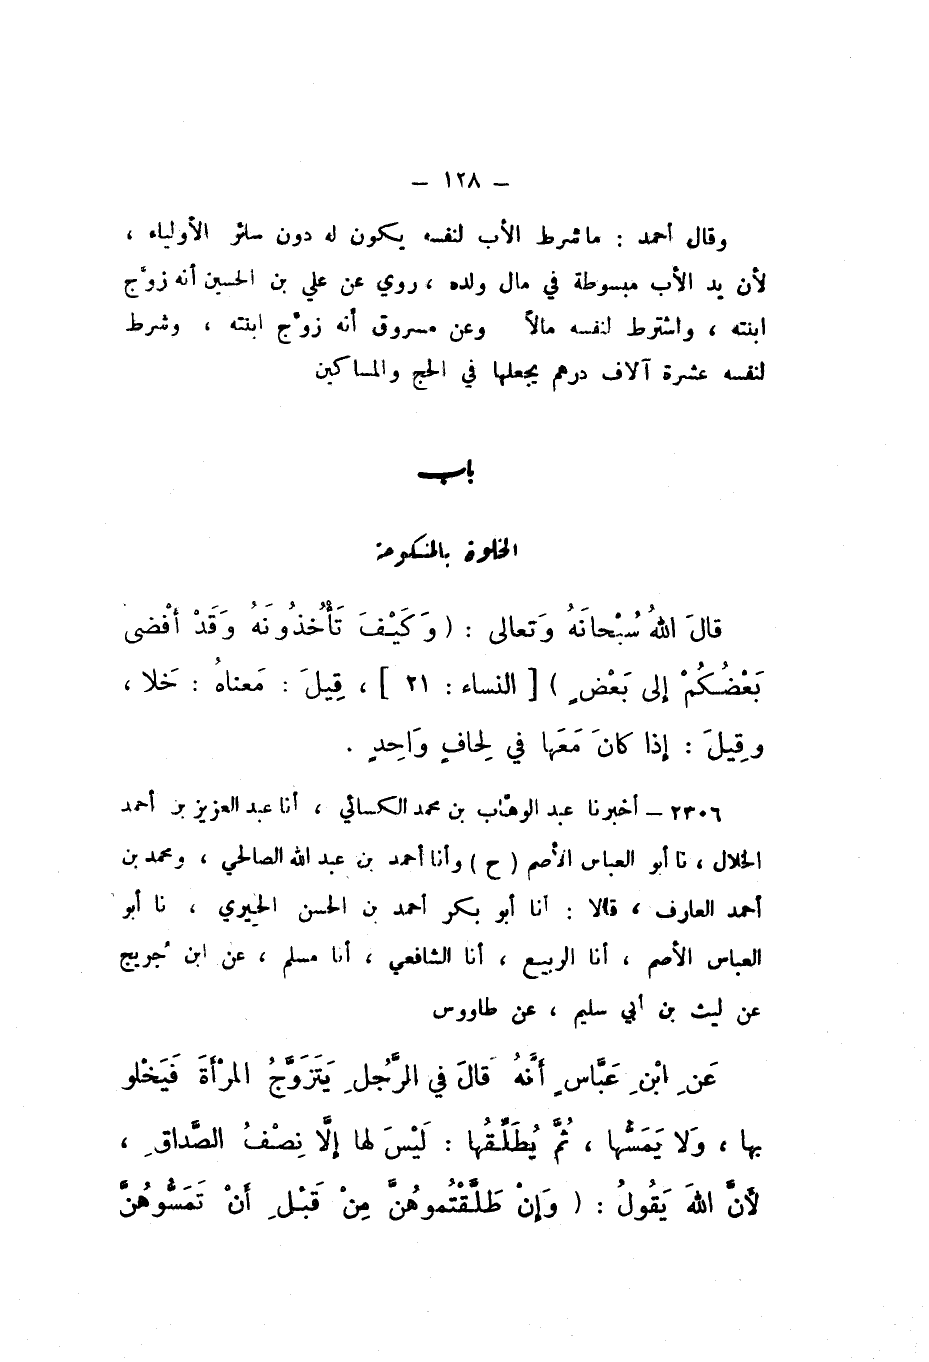 – ١٢٨ –
وقال أحمد : ماشرط الأب لنفسه يكون له دون سائر الأولياء ،
لأن يد الأب مبسوطة في مال ولده ، روي عن علي بن الحسين أنه زوَّج
ابنته ، واشترط لنفسه مالاً وعن مسروق أنه زوَّج ابنته ، وشرط
لنفسه عشرة آلاف درهم يجعلها في الحج والمساكين
باب
الخلوة بالمنكوحة
قالَ اللهُ سُبْحانَهُ وَتعالى : ( وَكَيْفَ تَأْخُذُونَهُ وَقَدْ أَفْضى
بَعْضُكُمْ إلى بَعْضٍ ) [ النساء : ٢١ ] ، قِيلَ : مَعناهُ : خَلا ،
وقِيلَ : إذا كانَ مَعَها في لِحافٍ وَاحِدٍ .
٢٣٠٦ – أخبرنا عبد الوهّاب بن محمد الكسائي ، أنا عبد العزيز بن أحمد
الخلال ، نا أبو العباس الأصم ( ح ) وأنا أحمد بن عبد الله الصالحي ، ومحمد بن
أحمد العارف ، قالا : أنا أبو بكر أحمد بن الحسن الحِيري ، نا أبو
العباس الأصم ، أنا الربيع ، أنا الشافعي ، أنا مسلم ، عن ابن جُريج
عن ليث بن أبي سليم ، عن طاووس
عَنِ ابْنِ عَبَّاسٍ أَنَّهُ قالَ في الرَّجُلِ يَتَزَوَّجُ المرْأَةَ فَيَخْلو
بها ، وَلا يَمَسُّها ، ثُمَّ يُطَلِّقُها : لَيْسَ لها إلَّا نِصْفُ الصَّداقِ ،
لأنَّ اللهَ يَقُولُ : ( وَإنْ طَلَّقْتُموهُنَّ مِنْ قَبْلِ أَنْ تَمَسُّوهُنَّ